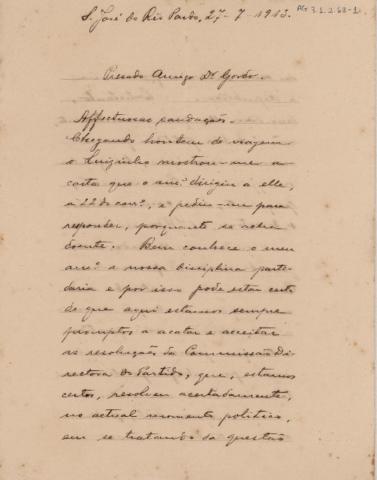 AG 3.1.2.68-1
S. José do Rio Pardo, 27-7-1913.
Presado Amigo Dr.
Affectuosas saudações.
Chegando hontem de viagem
o Luizinho mostrou-me a
carta que o am.º dirigiu a elle,
a 22 do corr.e, e pediu-me para
responder, porquanto se acha
doente. Bem conhece o meu
am.º a nossa disciplina parti-
daria e por isso pode estar certo
de que aqui estamos sempre
promptos a acatar e acceitar
as resoluções da Commissão Di-
rectora do Partido, que, estamos
certos, resolveu acertadamente,
no actual momento politico,
em se tratando da questão